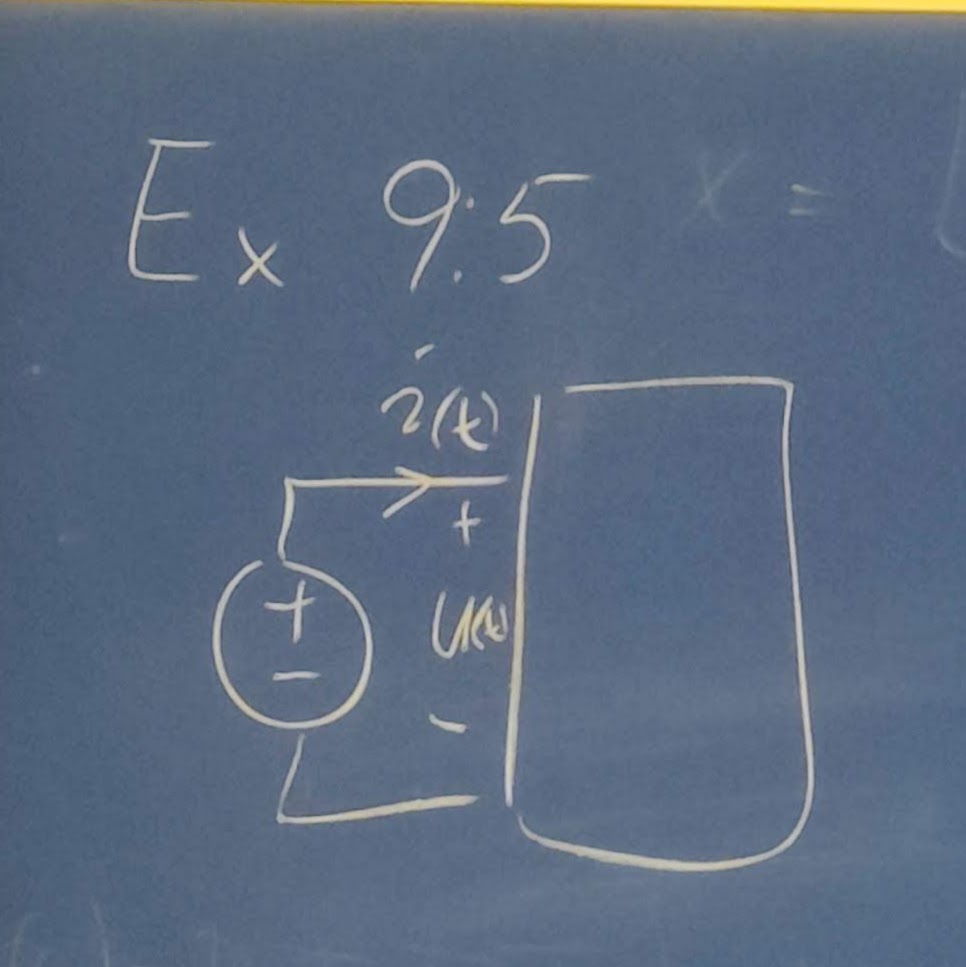 Ex 9.5 x =
i(t)
+
+
U(t)
-
-